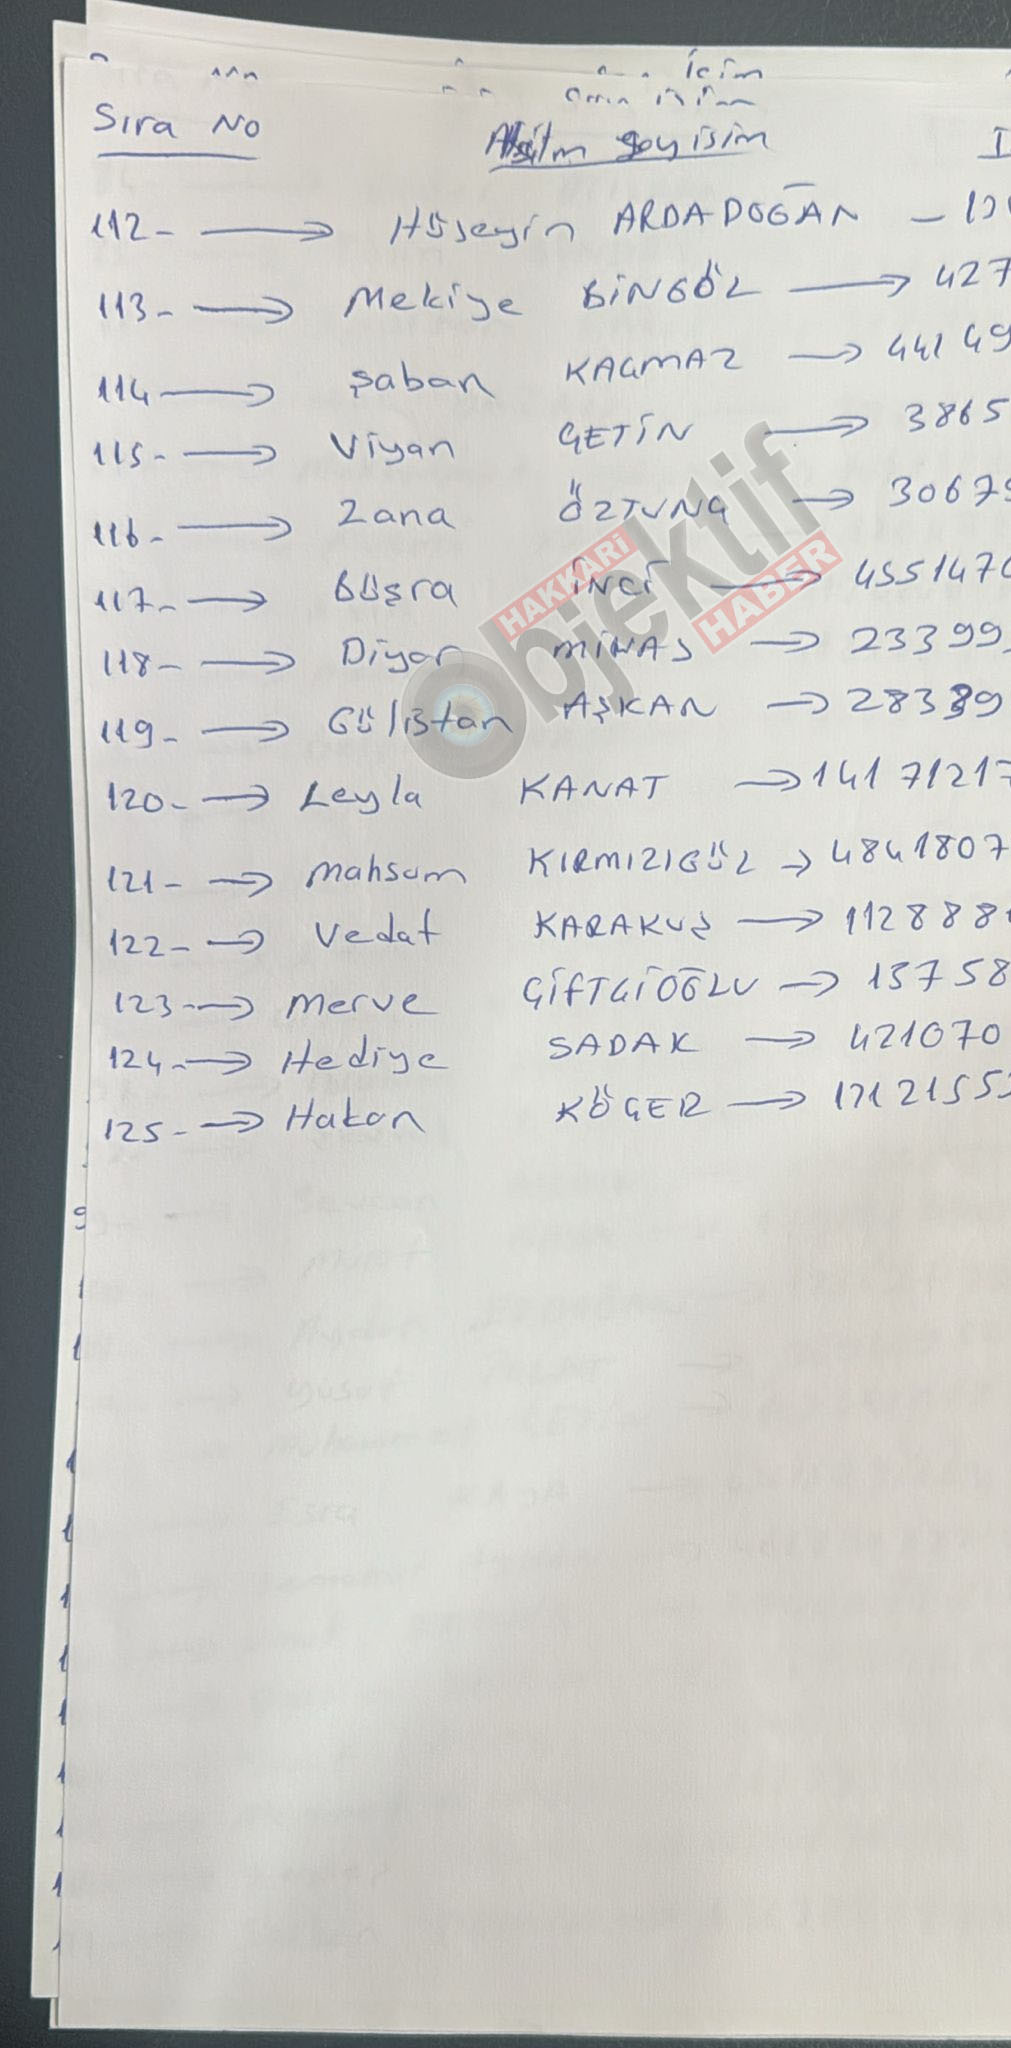 için
Sıra No soyisim I
112- → Hüseyin ARDADOĞAN -
113- → Mekiye BİNGÖL → 427
114 → Şaban KAÇMAZ → 44149
115- → Viyan ÇETİN → 3865
116- → Zana ÖZTUNÇ → 30679
117- → Büşra İNCİ → 4551470
118- → Diyar MİNAS → 23399
119- → Gülistan AŞKAN → 28389
120- → Leyla KANAT → 14171217
121- → Mahsum KIRMIZIGÜL → 4841807
122- → Vedat KARAKUŞ → 112888
123- → Merve ÇİFTÇİOĞLU → 13758
124- → Hediye SADAK → 421070
125- → Hakan KÖÇER → 17121553
HAKKARİ
Objektif
HABER